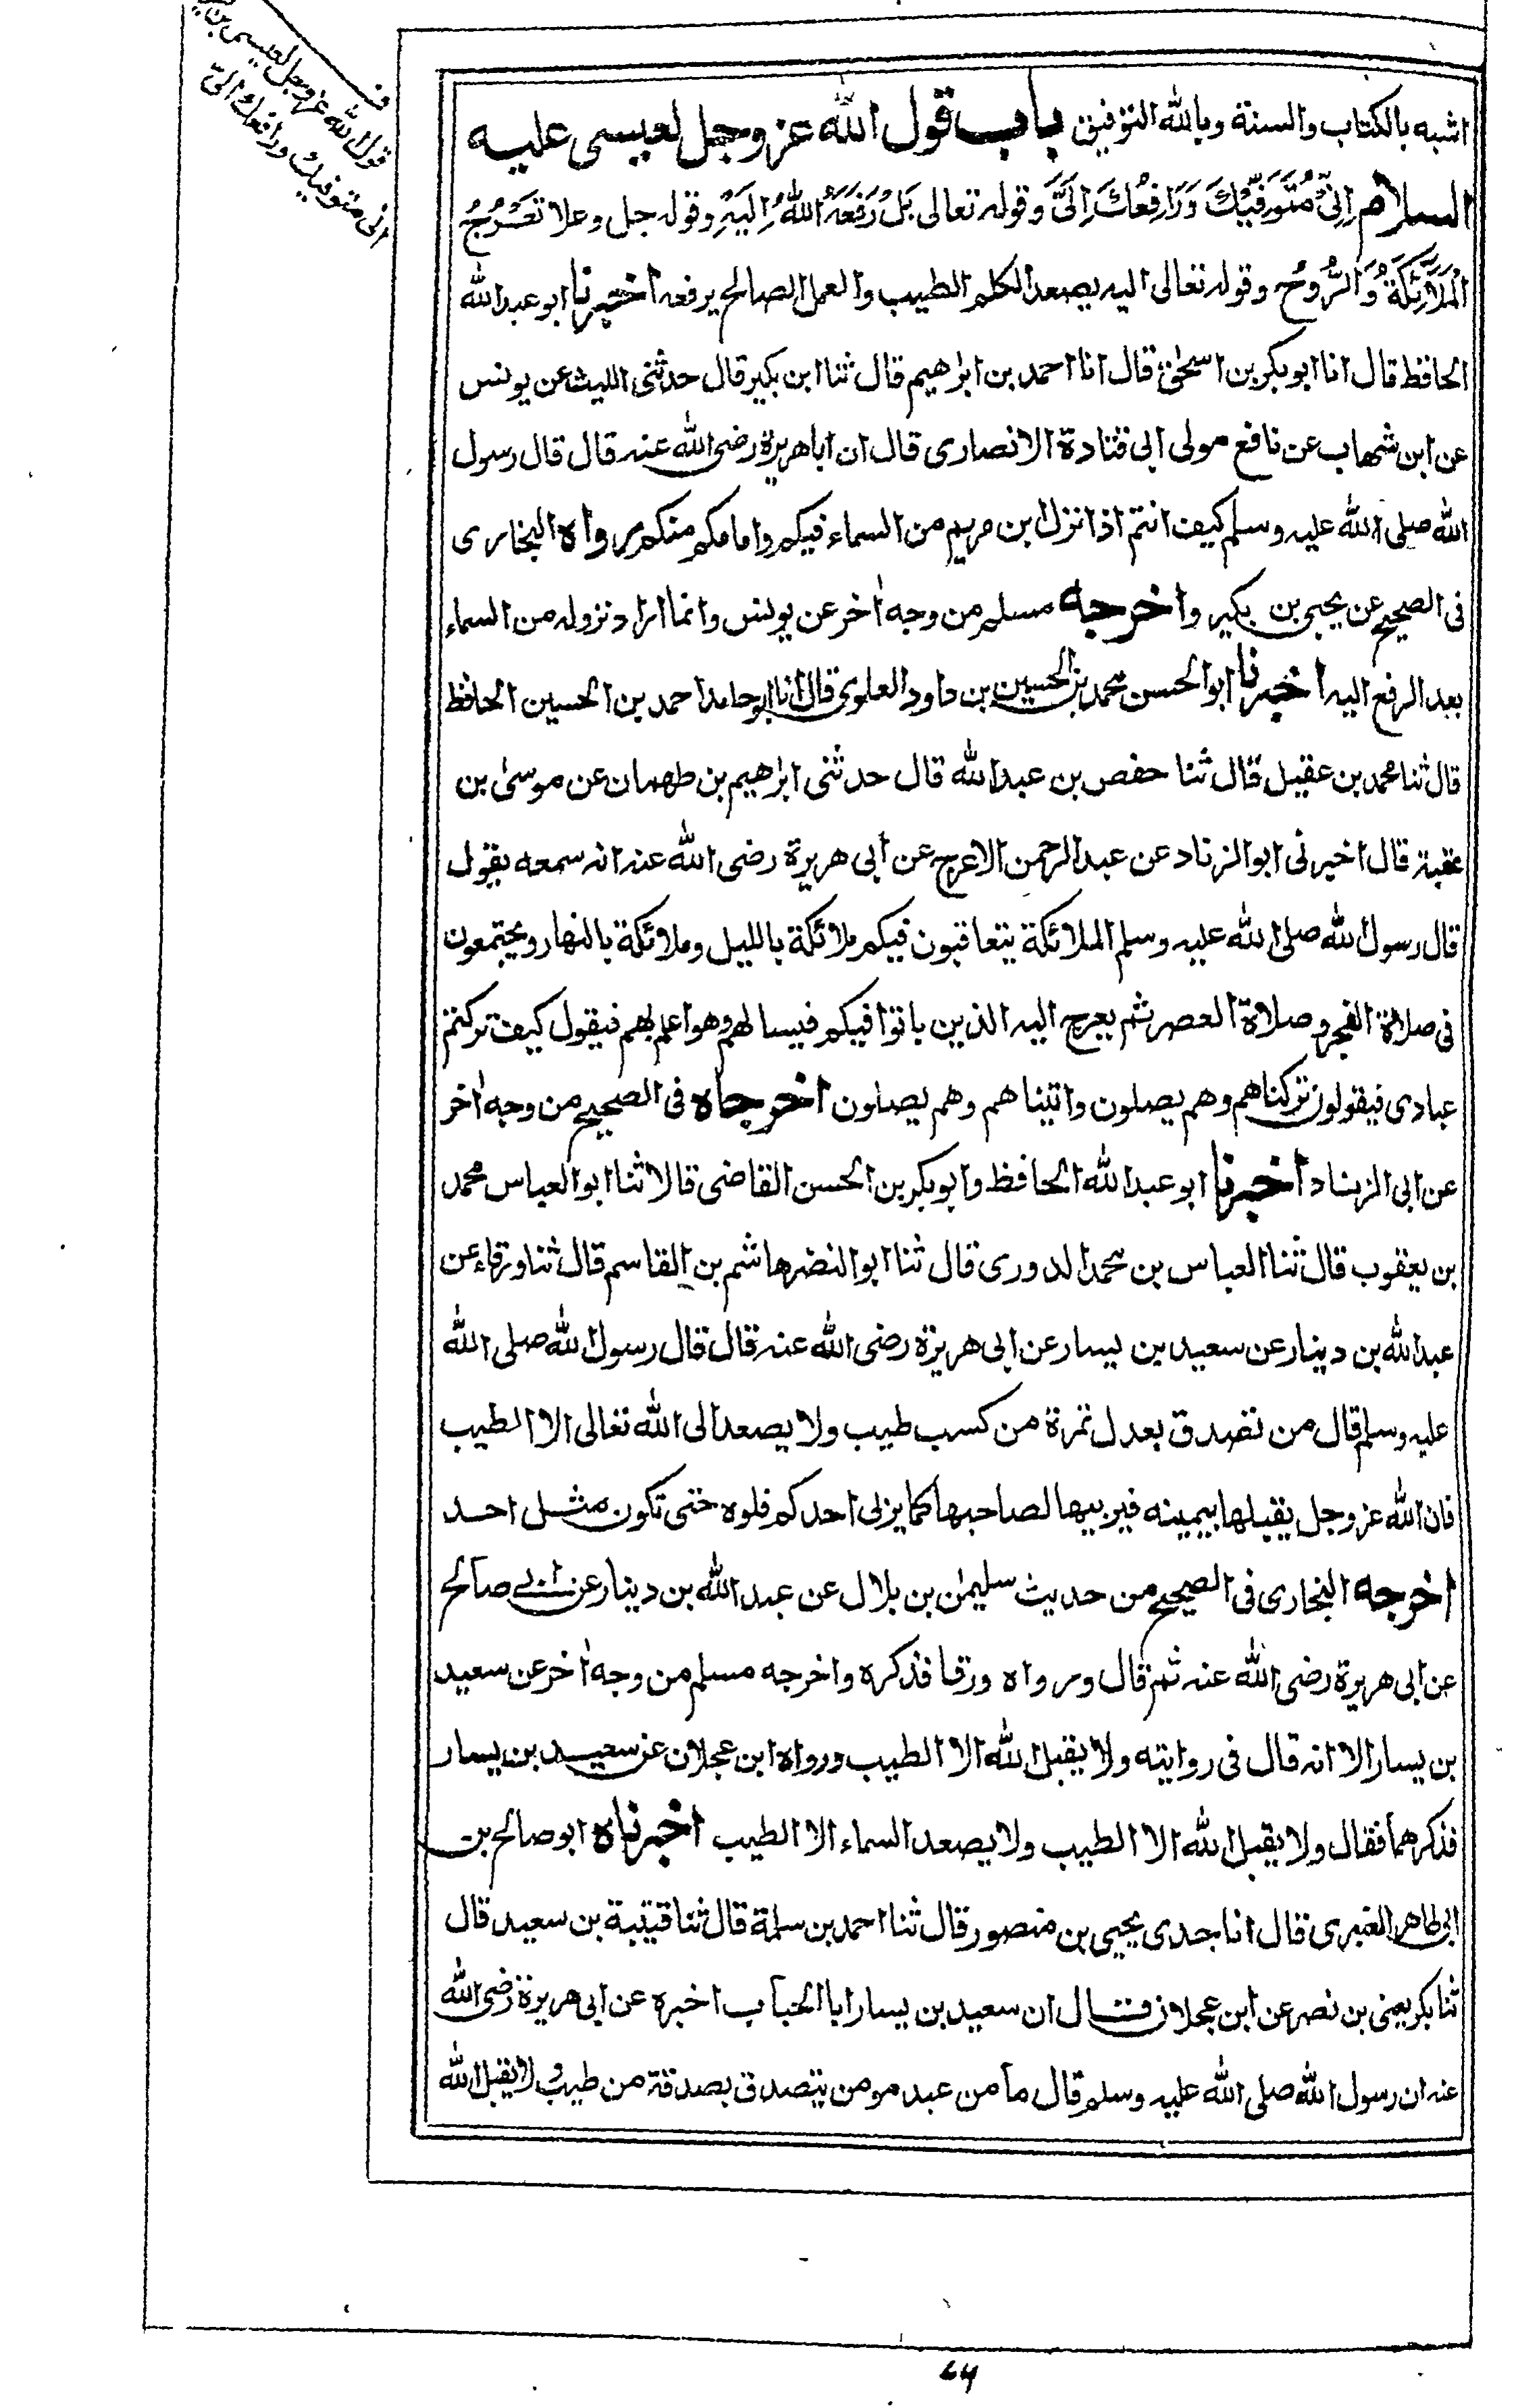 اشبه بالكتاب والسنة وبالله التوفيق باب قول الله عز وجل لعيسى عليه
السلام اِنِّىْ مُتَوَفِّيْكَ وَرَافِعُكَ اِلَىَّ وقوله تعالى بَلْ رَفَعَهُ اللهُ اِلَيْهِ وقوله جل وعلا تَعْرُجُ
الْمَلٰٓئِكَةُ وَالرُّوْحُ وقوله تعالى اليه يصعد الكلم الطيب والعمل الصالح يرفعه اخبرنا ابو عبد الله
الحافظ قال انا ابو بكر بن اسحٰق قال انا احمد بن ابرٰهيم قال ثنا ابن بكير قال حدثنى الليث عن يونس
عن ابن شهاب عن نافع مولى ابى قتادة الانصارى قال ان ابا هريرة رضى الله عنه قال قال رسول
الله صلى الله عليه وسلم كيف انتم اذا نزل ابن مريم من السماء فيكم وامامكم منكم رواه البخارى
فى الصحيح عن يحيى بن بكير واخرجه مسلم من وجه اٰخر عن يونس وانما اراد نزوله من السماء
بعد الرفع اليه اخبرنا ابو الحسن محمد بن الحسين بن داود العلوى قال انا ابو حامد احمد بن الحسين الحافظ
قال ثنا محمد بن عقيل قال ثنا حفص بن عبد الله قال حدثنى ابرٰهيم بن طهمان عن موسىٰ بن
عقبة قال اخبرنى ابو الزناد عن عبد الرحمن الاعرج عن ابى هريرة رضى الله عنه انه سمعه يقول
قال رسول الله صلى الله عليه وسلم الملائكة يتعاقبون فيكم ملائكة بالليل وملائكة بالنهار ويجتمعون
فى صلاة الفجر وصلاة العصر ثم يعرج اليه الذين باتوا فيكم فيسالهم وهو اعلم بهم فيقول كيف تركتم
عبادى فيقولون تركناهم وهم يصلون واتيناهم وهم يصلون اخرجاه فى الصحيح من وجه اٰخر
عن ابى الزناد اخبرنا ابو عبد الله الحافظ وابو بكر بن الحسن القاضى قالا ثنا ابو العباس محمد
بن يعقوب قال ثنا العباس بن محمد الدورى قال ثنا ابو النضر هاشم بن القاسم قال ثنا ورقاء عن
عبد الله بن دينار عن سعيد بن يسار عن ابى هريرة رضى الله عنه قال قال رسول الله صلى الله
عليه وسلم قال من تصدق بعدل تمرة من كسب طيب ولا يصعد الى الله تعالى الا الطيب
فان الله عز وجل يقبلها بيمينه فيربيها لصاحبها كما يربى احدكم فلوه حتى تكون مثل احد
اخرجه البخارى فى الصحيح من حديث سليمٰن بن بلال عن عبد الله بن دينار عن ابى صالح
عن ابى هريرة رضى الله عنه ثم قال ورواه ورقا فذكره واخرجه مسلم من وجه اٰخر عن سعيد
بن يسار الا انه قال فى روايته ولا يقبل الله الا الطيب ورواه ابن عجلان عن سعيد بن يسار
فذكرهما فقال ولا يقبل الله الا الطيب ولا يصعد السماء الا الطيب اخبرناه ابو صالح بن
ابى طاهر العنبرى قال انا جدى يحيى بن منصور قال ثنا احمد بن سلمة قال ثنا قتيبة بن سعيد قال
ثنا بكر يعنى بن نصر عن ابن عجلان قال ان سعيد بن يسار ابا الحباب اخبره عن ابى هريرة رضى الله
عنه ان رسول الله صلى الله عليه وسلم قال ما من عبد مومن يتصدق بصدقة من طيب ولا يقبل الله
قول الله عز وجل لعيسى بن
انى متوفيك ورافعك الىّ